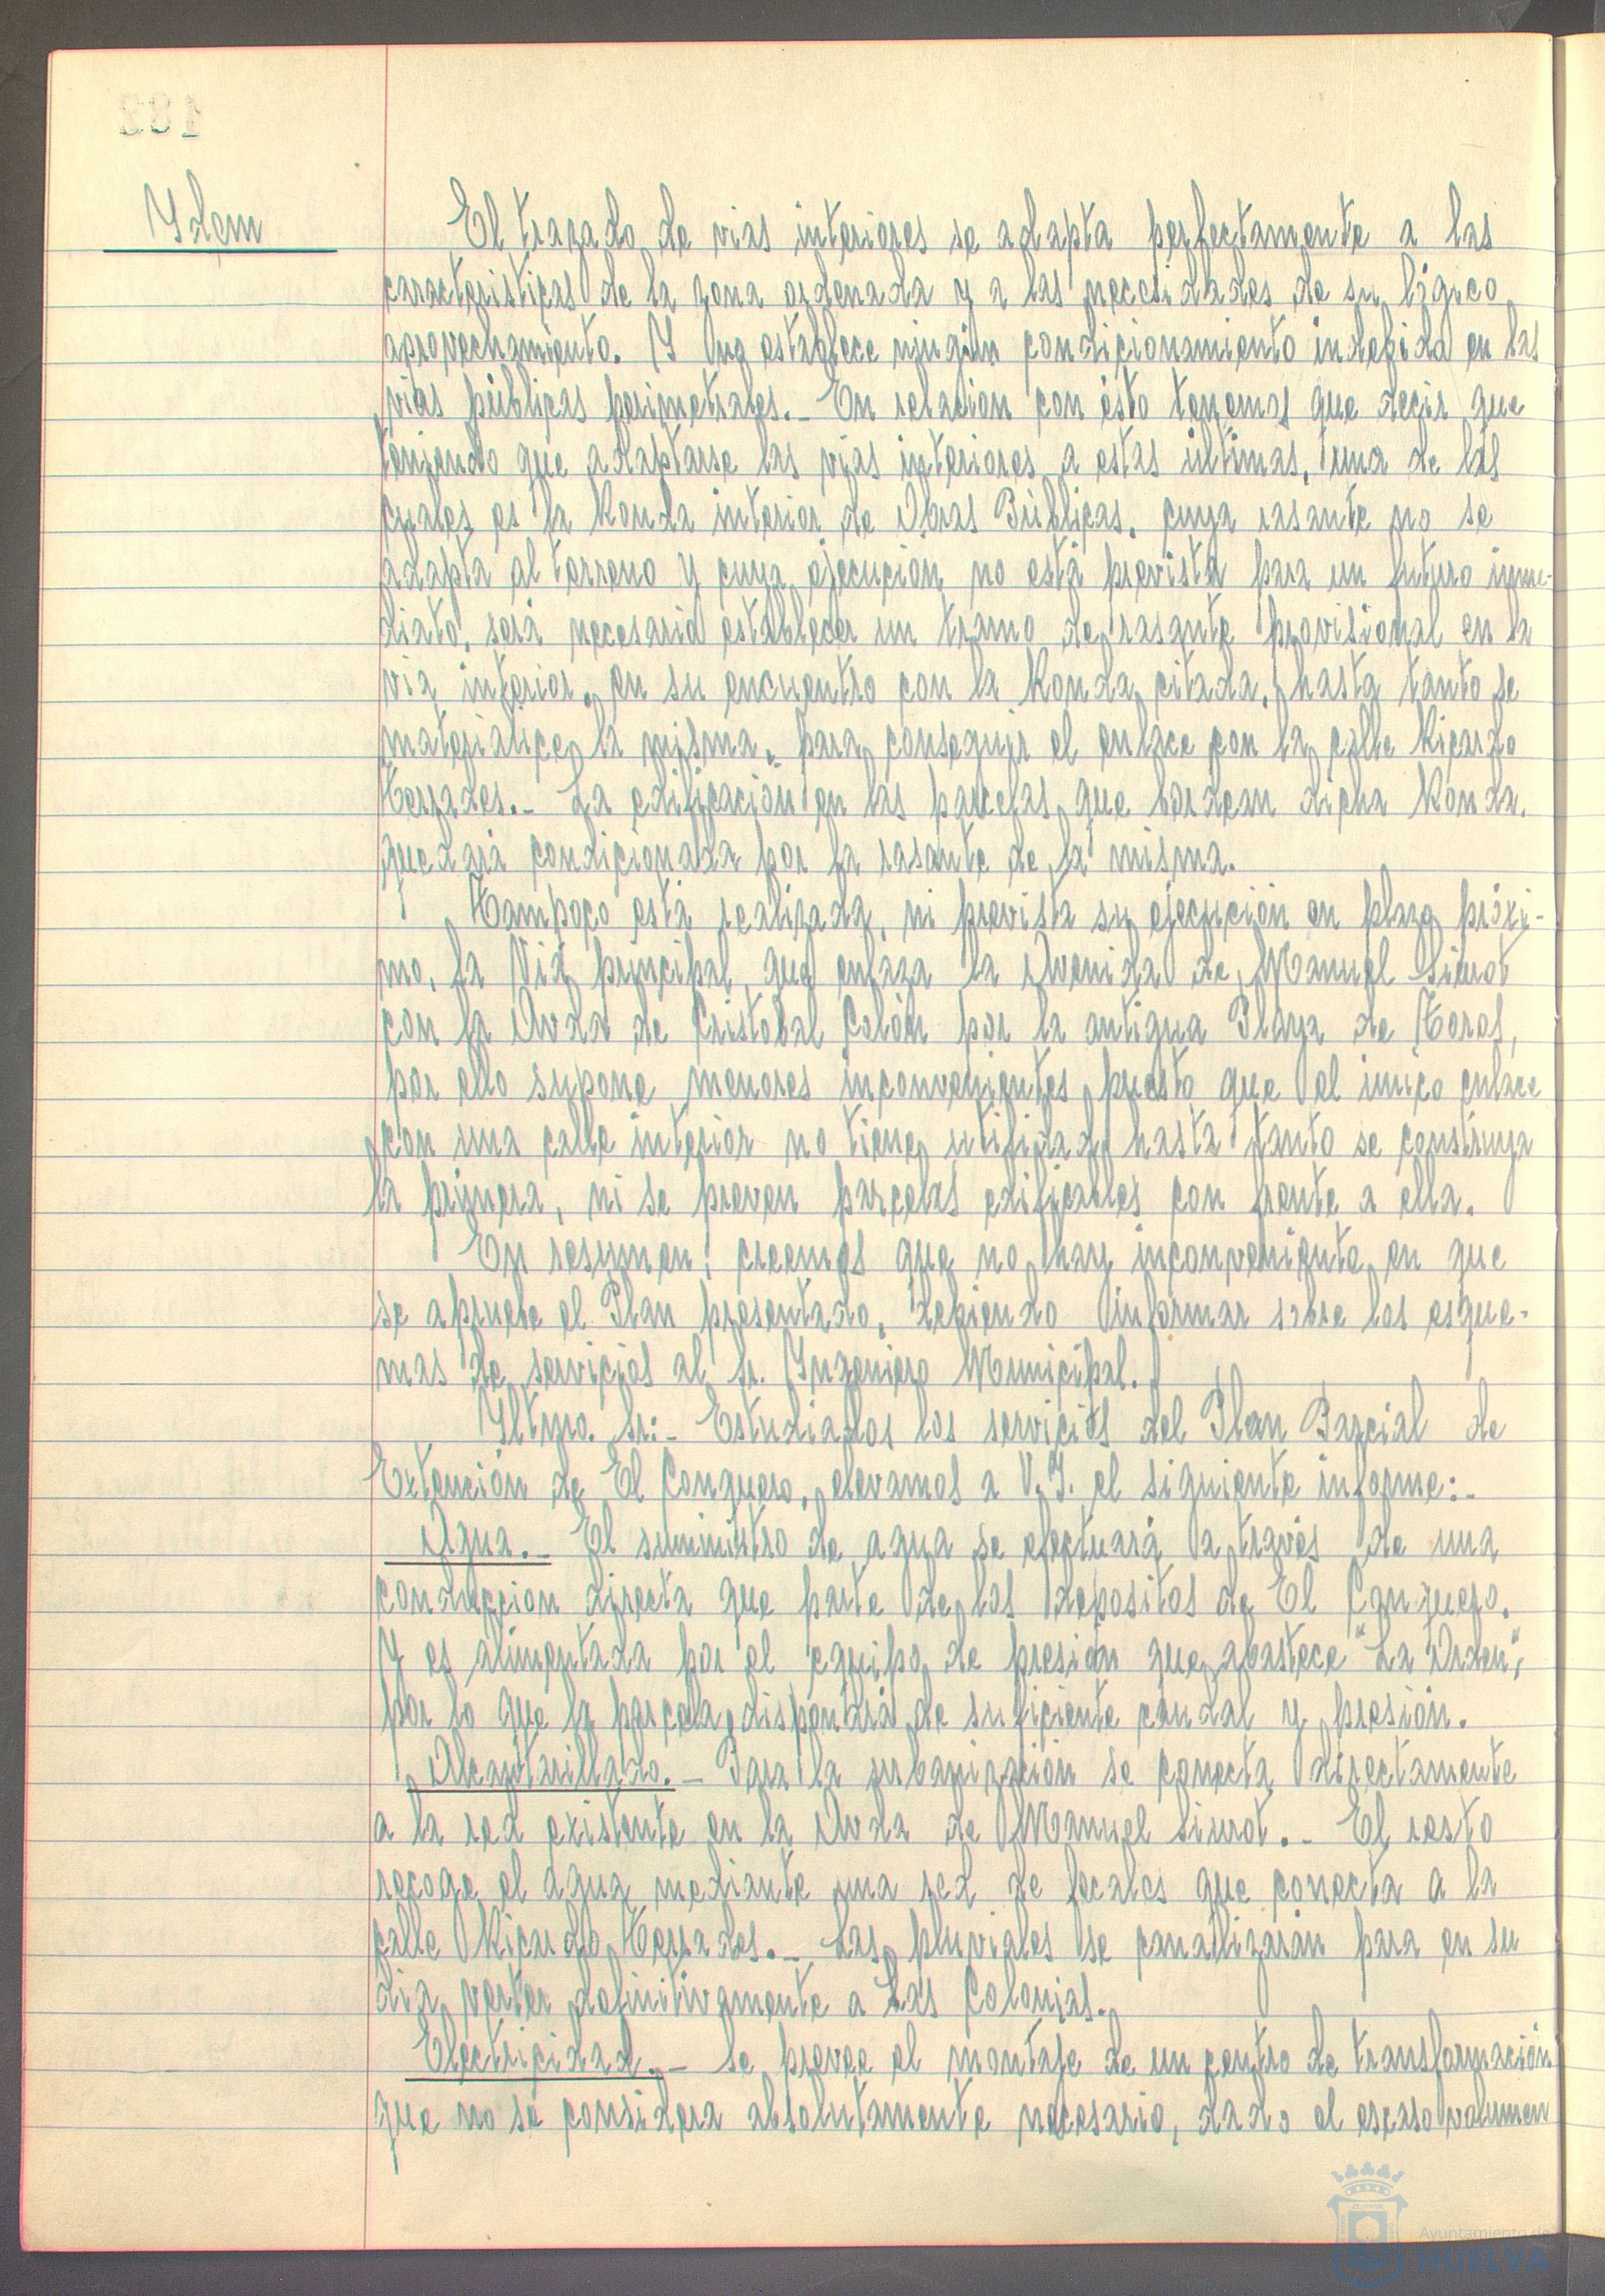 Ydem
El trazado de vias interiores se adapta perfectamente a las
caracteristicas de la zona ordenada y a las necesidades de su lógico
aprovechamiento. Y no establece ningún condicionamiento indebido en las
vias públicas perimetrales.- En relación con ésto tenemos que decir que
teniendo que adaptarse las vias interiores a estas últimas, una de las
cuales es la Ronda interior de Obras Públicas, cuya rasante no se
adapta al terreno y cuya ejecución no está prevista para un futuro inme-
diato, será necesario establecer un tramo de rasante provisional en la
via interior, en su encuentro con la Ronda citada, hasta tanto se
materialice la misma, para conseguir el enlace con la calle Ricardo
Terrades.- La edificación en las parcelas que bordean dicha Ronda,
quedará condicionada por la rasante de la misma.
Tampoco está realizada, ni prevista su ejecución en plazo próxi-
mo, la Via principal, que enlaza la Avenida de Manuel Siurot
con la Avda de Cristobal Colón por la antigua Plaza de Toros,
por ello supone menores inconvenientes puesto que el único enlace
con una calle interior no tiene utilidad hasta tanto se construya
la primera, ni se preven parcelas edificables con frente a ella.
En resumen: creemos que no hay inconveniente en que
se apruebe el Plan presentado, debiendo informar sobre los esque-
mas de servicios al Sr. Ingeniero Municipal.
Iltmo. Sr:- Estudiados los servicios del Plan Parcial de
Extención de El Conquero, elevamos a V.I. el siguiente informe:-
Agua.- El suministro de agua se efectuará a través de una
conducción directa que parte de los depositos de El Conquero.
Y es alimentada por el equipo de presión que abastece "La Orden",
por lo que la parcela dispondrá de suficiente caudal y presión.
Alcantarillado.- Para la urbanización se conecta directamente
a la red existente en la Avda de Manuel Siurot.- El resto
recoge el agua mediante una red de fecales que conecta a la
calle Ricardo Terrades.- Las pluviales se canalizarán para en su
dia verter definitivamente a Las Colonias.
Electricidad.- Se prevee el montaje de un centro de transformación
que no se considera absolutamente necesario, dado el escaso volumen
Ayuntamiento de
HUELVA